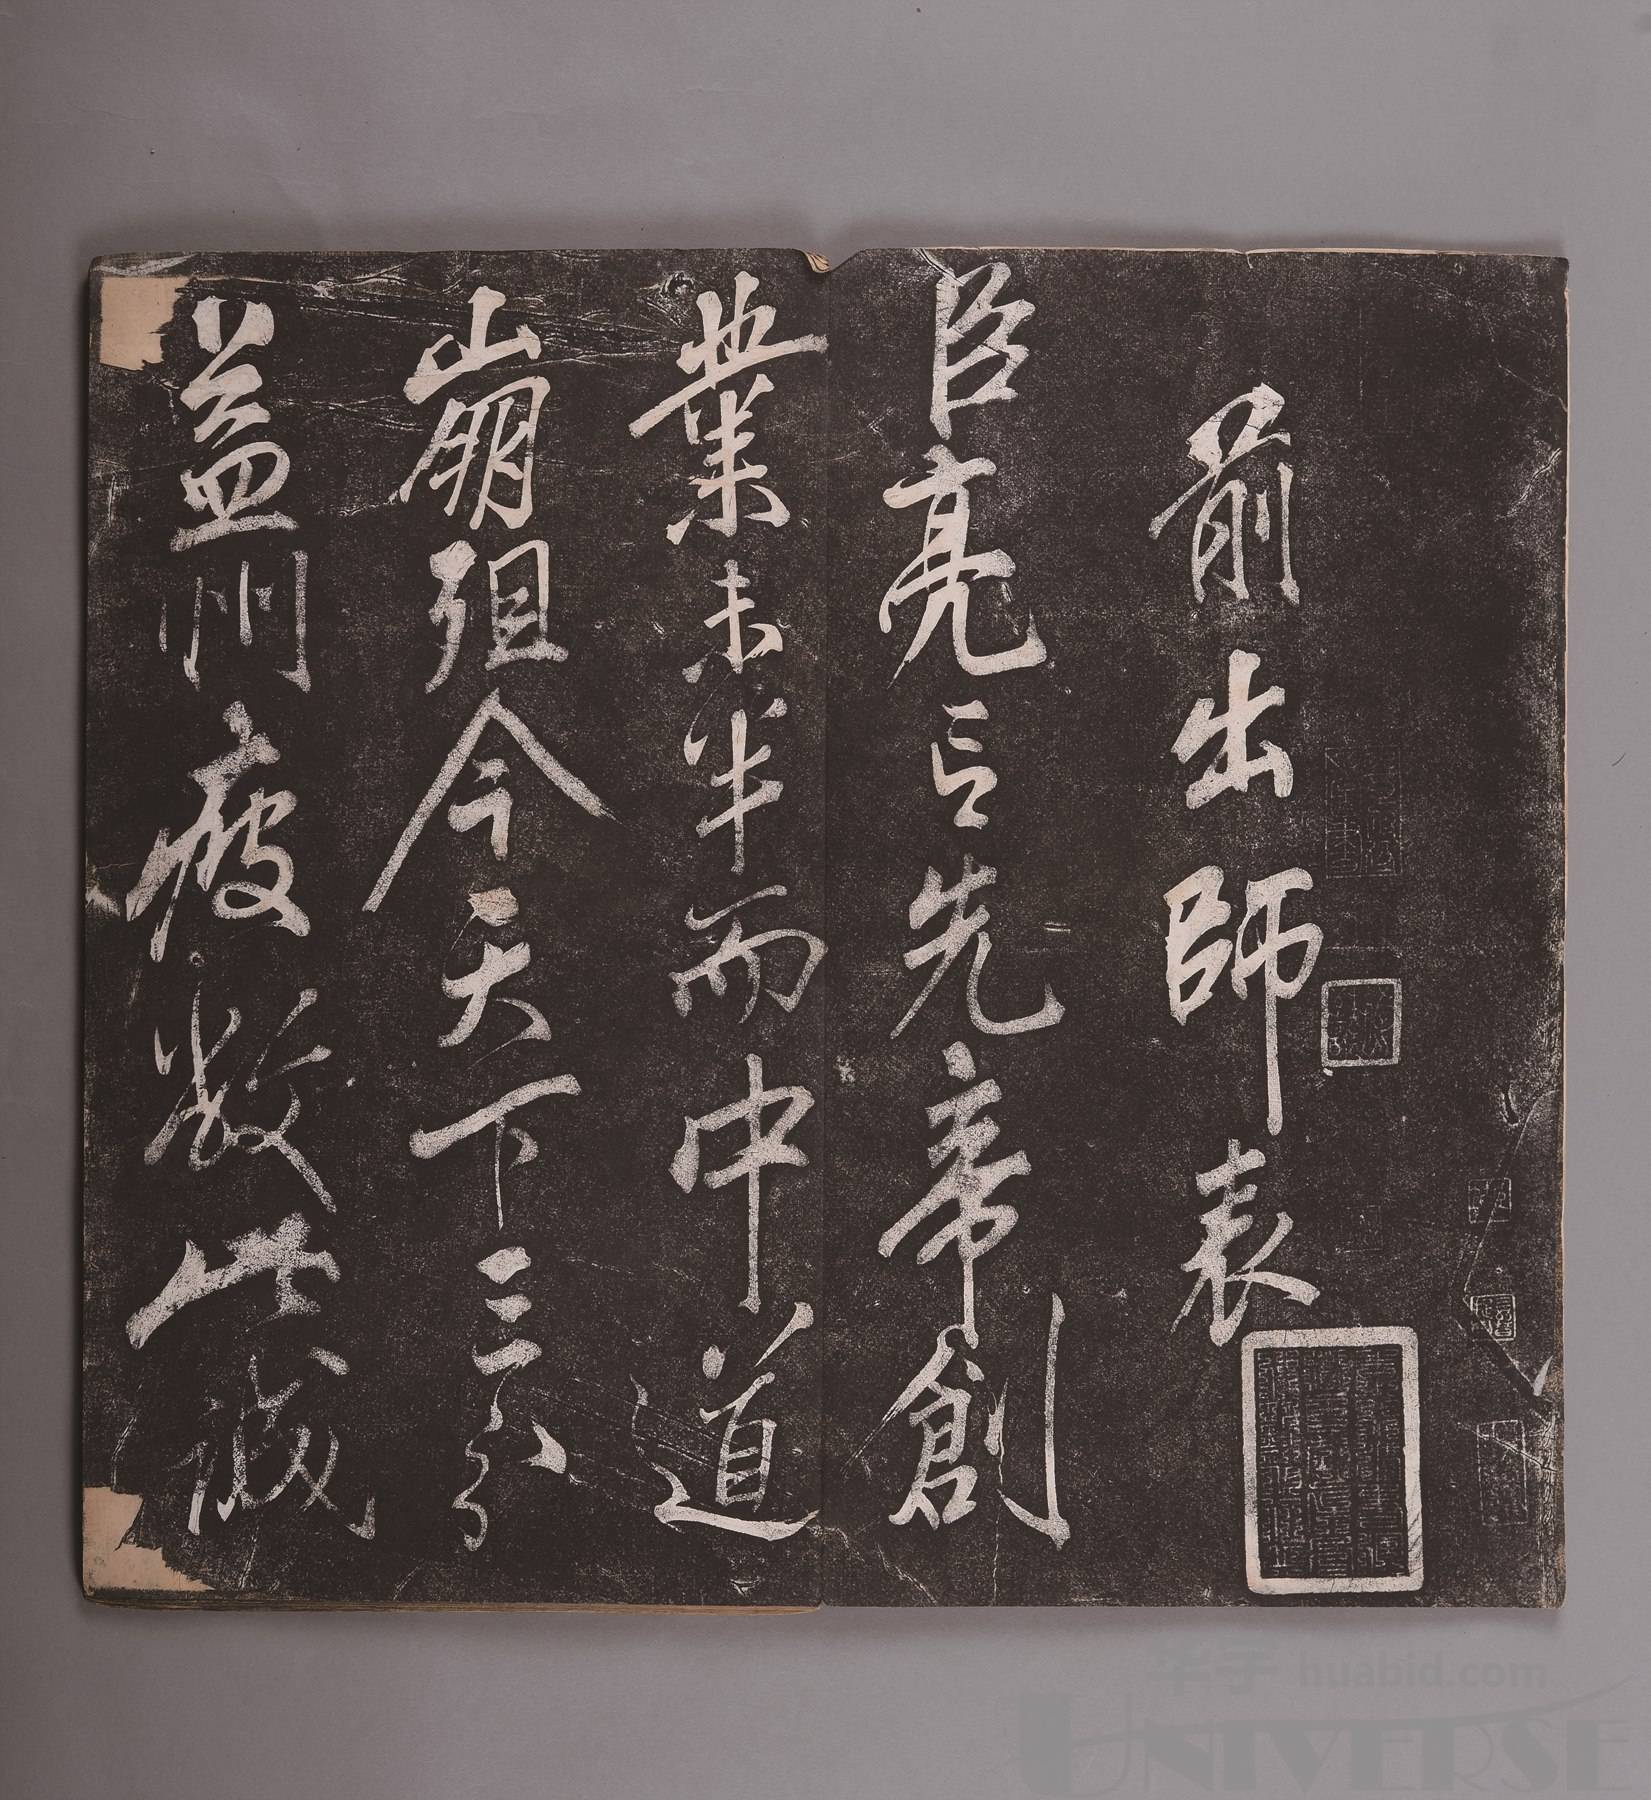 前出師表
臣亮言先帝創
業未半而中道
崩殂今天下三分
益州疲敝此誠
华宇 huabid.com
UNIVERSE